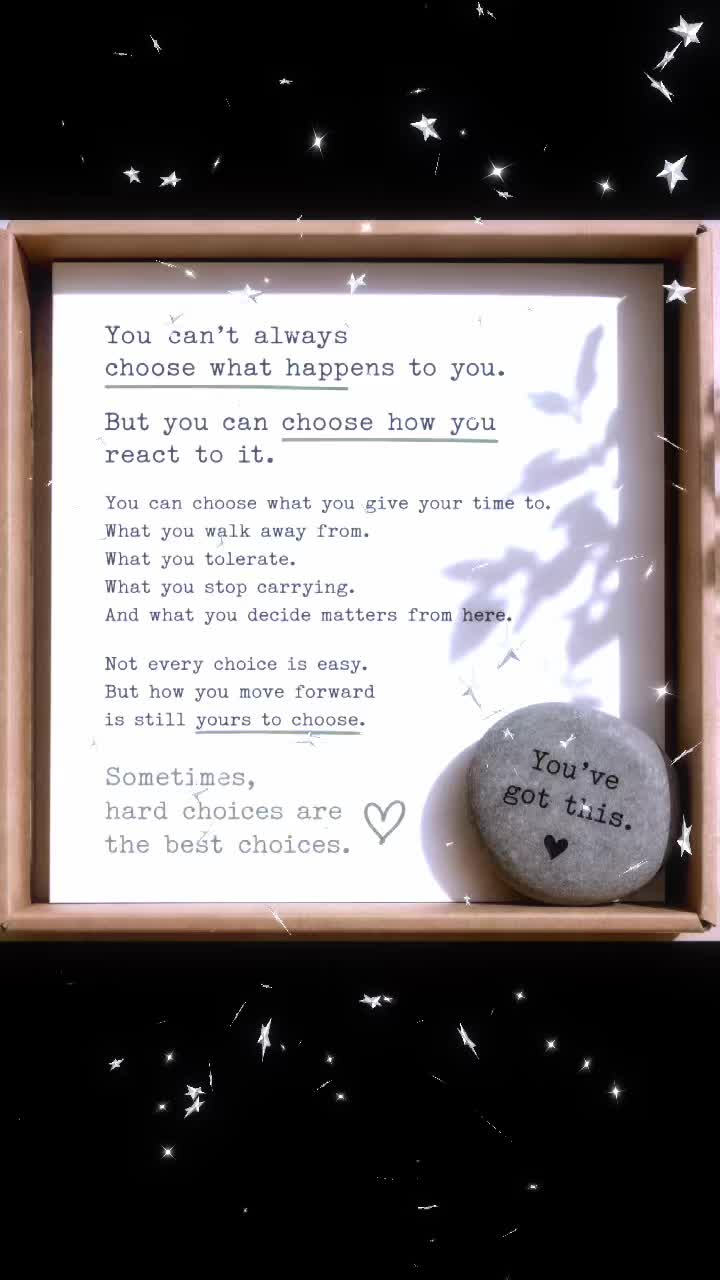 You can't always
choose what happens to you.
But you can choose how you
react to it.
You can choose what you give your time to.
What you walk away from.
What you tolerate.
What you stop carrying.
And what you decide matters from here.
Not every choice is easy.
But how you move forward
is still yours to choose.
Sometimes,
hard choices are
the best choices.
You've
got this.